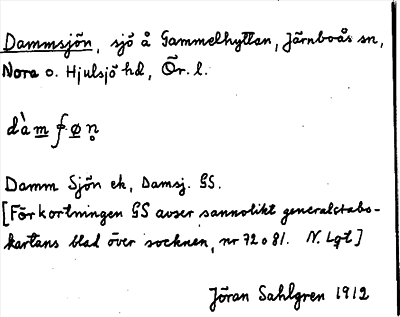 Dammsjön, sjö å Gammelhyttan, Järnboås sn,
Nora o. Hjulsjö hd, Ör. l.
dàmʃøn̥
Damm Sjön ek, Damsj. GS.
[Förkortningen GS avser sannolikt generalstabs-
kartans blad över socknen, nr 72 o 81. N. Lgt]
Jöran Sahlgren 1912